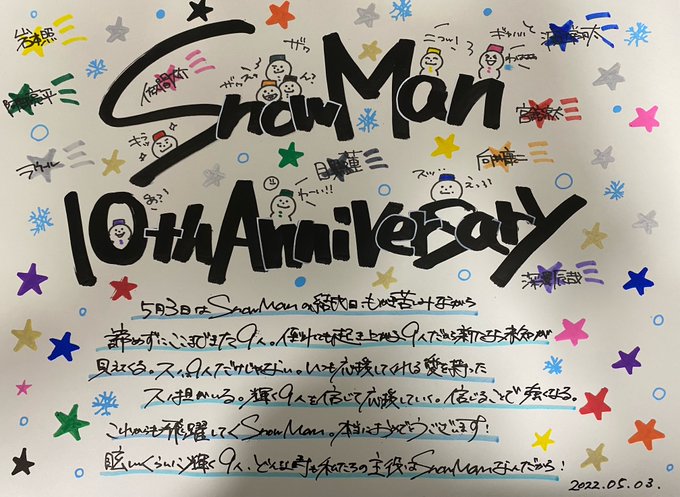 岩本照
深澤辰哉
佐久間大介
阿部亮平
宮舘涼太
ラウール
目黒蓮
向井康二
Snow Man
10th Anniversary
ニコッ!
ギャハハ
わーい!!
えっ?
5月3日はSnowManの結成日。もがき苦しみながら
諦めずにここまできた9人。何れでも起き上がる9人だから新たな未知が
見えてくる。スノ9人だけじゃない。いつも応援してくれる愛を持った
スノ担がいる。輝く9人を信じて応援していく。信じることで強くなる。
これからも飛躍してくSnowMan。本当におめでとうございます!
眩しいくらいに輝く9人、どんな時も私たちの主役はSnowManなんだから!
2022.05.03.